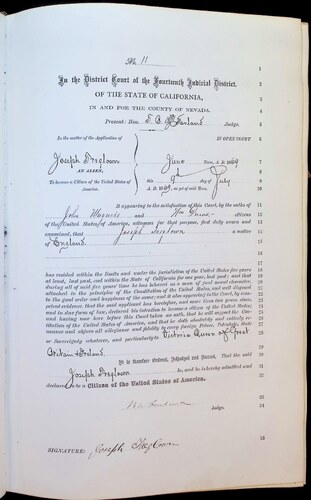 No. 11
In the District Court of the Fourteenth Judicial District,
OF THE STATE OF CALIFORNIA,
IN AND FOR THE COUNTY OF NEVADA.
Present: Hon. T. B. McFarland Judge.
In the matter of the Application of
IN OPEN COURT
Joseph
June Term, A. D. 1869
AN ALIEN,
To become a Citizen of the United States of
America.
this 9th day of July
A. D. 1869, as yet of said Term.
It appearing to the satisfaction of this Court, by the oaths of
John and Wm citizens
of the United States of America, witnesses for that purpose, first duly sworn and
examined, that Joseph a native
of England
has resided within the limits and under the jurisdiction of the United States five years
at least, last past, and within the State of California for one year, last past; and that
during all of said five years' time he has behaved as a man of good moral character,
attached to the principles of the Constitution of the United States, and well disposed
to the good order and happiness of the same; and it also appearing to the Court, by com-
petent evidence, that the said applicant has heretofore, and more than two years since,
and in due form of law, declared his intention to become a citizen of the United States;
and having now here before this Court taken an oath, that he will support the Con-
stitution of the United States of America, and that he doth absolutely and entirely re-
nounce and abjure all allegiance and fidelity to every foreign Prince, Potentate, State
or Sovereignty whatever, and particularly to Victoria Queen of Great
Britain & Ireland
It is therefore Ordered, Adjudged and Decreed, That the said
Joseph is, and he is hereby admitted and
declared to be a Citizen of the United States of America.
Judge.
SIGNATURE: Joseph
1
2
3
4
5
6
7
8
9
10
11
12
13
14
15
16
17
18
19
20
21
22
23
24
25
26
27
28
29
30
31
32
33
34
35